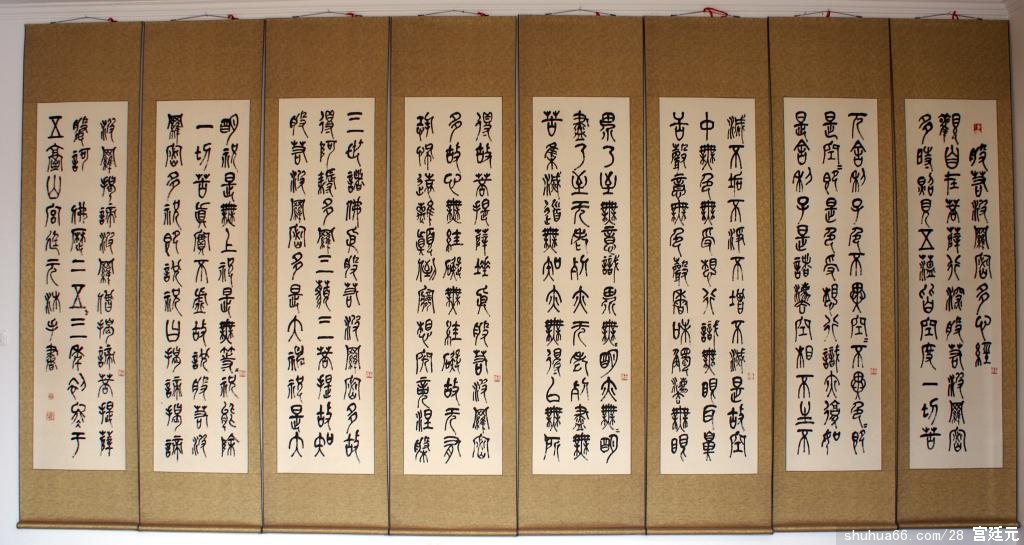 般若波羅密多心經
觀自在菩薩行深般若波羅密
多時照見五蘊皆空度一切苦
厄舍利子色不異空〻不異色〻即
是空〻即是色受想行識亦復如
是舍利子是諸法空相不生不
滅不垢不淨不增不減是故空
中無色無受想行識無眼耳鼻
舌身意無色聲香味觸法無眼
界乃至無意識界無〻明亦無〻明
盡乃至无老死亦无老死盡無
苦集滅道無知亦無得以無所
得故菩提薩埵依般若波羅密
多故心無罣礙無罣礙故无有
恐怖遠離顛倒夢想究竟涅槃
三世諸佛依般若波羅密多故
得阿耨多羅三藐三菩提故知
般若波羅密多是大神咒是大
明咒是無上咒是無等〻咒能除
一切苦真實不虛故說般若波
羅密多咒即說咒曰揭諦揭諦
波羅揭諦波羅僧揭諦菩提薩
婆訶 佛歷二五〻三年初冬于
五臺山宮廷元沐手書
shuhua66.com/28 宫廷元